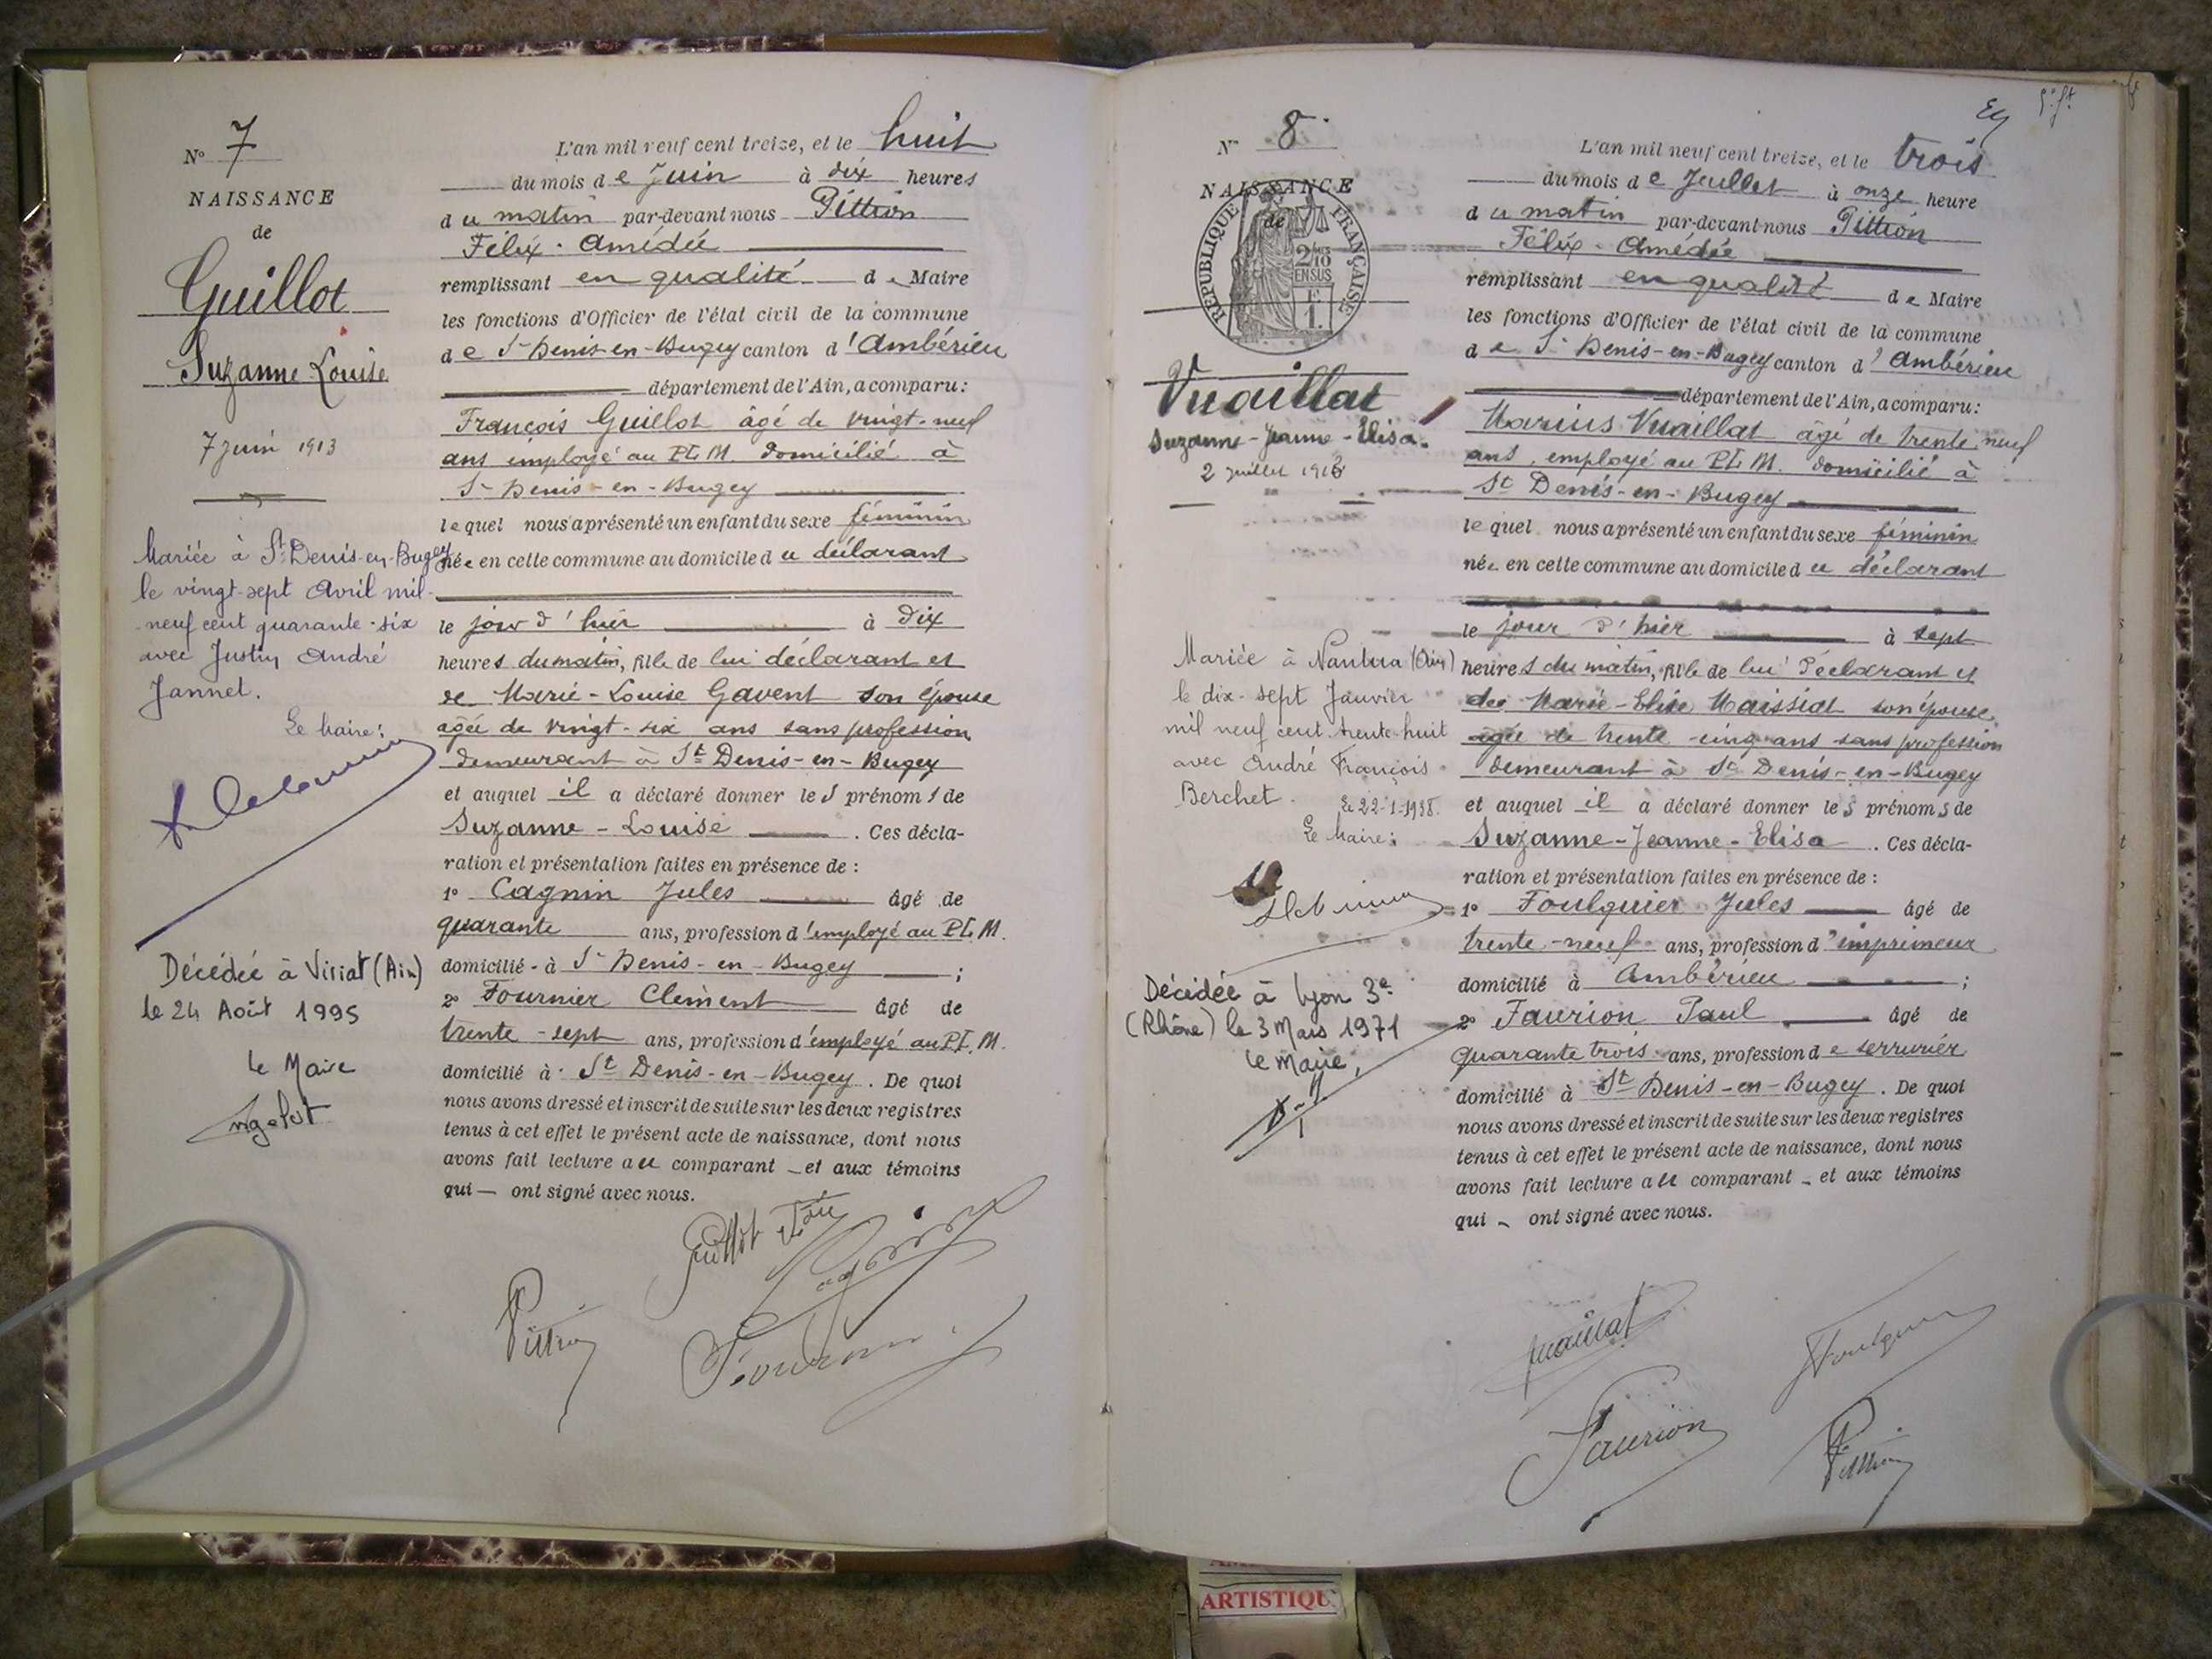 N° 7
NAISSANCE
de
Guillot
Suzanne Louise
7 Juin 1913
Mariée à St Denis-en-Bugey
le vingt-sept Avril mil-
neuf cent quarante-six
avec Justin André
Jannet.
Le Maire:
Décédée à Viriat (Ain)
le 24 Août 1995
Le Maire
L'an mil neuf cent treize, et le huit
du mois de Juin à dix heures
du matin par-devant nous Pittion
Félix-Amédée
remplissant en qualité de Maire
les fonctions d'Officier de l'état civil de la commune
de St Denis-en-Bugey canton d'Ambérieu
département de l'Ain, a comparu:
François Guillot âgé de vingt-neuf
ans employé au P.L.M. domicilié à
St Denis-en-Bugey
lequel nous a présenté un enfant du sexe féminin
née en cette commune au domicile du déclarant
le jour d'hier à dix
heures du matin, fille de lui déclarant et
de Marie-Louise Gavent son épouse
agée de vingt-six ans sans profession
demeurant à St Denis-en-Bugey
et auquel il a déclaré donner les prénoms de
Suzanne-Louise. Ces décla-
ration et présentation faites en présence de:
1° Cagnin Jules âgé de
quarante ans, profession d'employé au P.L.M.
domicilié à St Denis-en-Bugey;
2° Fournier Clément âgé de
trente-sept ans, profession d'employé au P.L.M.
domicilié à St Denis-en-Bugey. De quoi
nous avons dressé et inscrit de suite sur les deux registres
tenus à cet effet le présent acte de naissance, dont nous
avons fait lecture au comparant et aux témoins
qui ont signé avec nous.
Guillot
Pittion
Fournier
N° 8
NAISSANCE
de
RÉPUBLIQUE FRANÇAISE
2/10
EN SUS
F
1.
Vuaillat
Suzanne-Jeanne-Elisa.
2 Juillet 1913
Mariée à Nantua (Ain)
le dix-sept Janvier
mil neuf cent trente-huit
avec André François
Berchet.
Le 22-1-1938.
Le Maire:
Décédée à Lyon 3e
(Rhône) le 3 Mars 1971
Le Maire,
L'an mil neuf cent treize, et le trois
du mois de Juillet à onze heure
du matin par-devant nous Pittion
Félix-Amédée
remplissant en qualité de Maire
les fonctions d'Officier de l'état civil de la commune
de St Denis-en-Bugey canton d'Ambérieu
département de l'Ain, a comparu:
Marius Vuaillat âgé de trente neuf
ans, employé au P.L.M. domicilié à
St Denis-en-Bugey
lequel nous a présenté un enfant du sexe féminin
née en cette commune au domicile du déclarant
le jour d'hier à sept
heures du matin, fille de lui déclarant et
de Marie-Elise Maissiat son épouse
agée de trente-cinq ans sans profession
demeurant à St Denis-en-Bugey
et auquel il a déclaré donner les prénoms de
Suzanne-Jeanne-Elisa. Ces décla-
ration et présentation faites en présence de:
1° Foulquier Jules âgé de
trente-neuf ans, profession d'imprimeur
domicilié à Ambérieu;
2° Faurion Paul âgé de
quarante trois ans, profession de serrurier
domicilié à St Denis-en-Bugey. De quoi
nous avons dressé et inscrit de suite sur les deux registres
tenus à cet effet le présent acte de naissance, dont nous
avons fait lecture au comparant et aux témoins
qui ont signé avec nous.
Vuaillat
Foulquier
Faurion
Pittion
ARTISTIQU